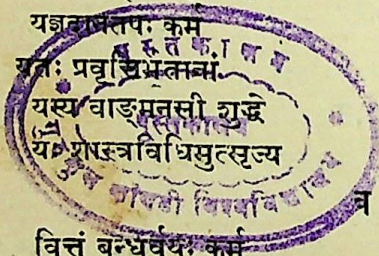 यज्ञदानतपः कर्म
यतः प्रवृत्तिर्भूतानां
यस्य वाङ्मनसी शुद्धे
यः शास्त्रविधिमुत्सृज्य
व
वित्तं बन्धुर्वयः कर्म
पुस्तकालय